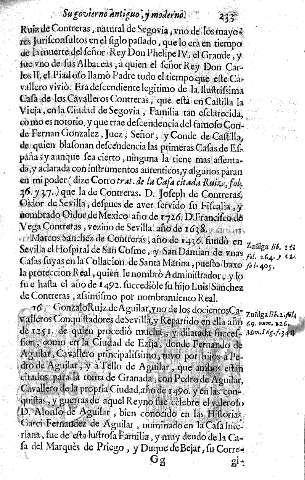 Su govierno antiguo, y moderno. 233
Ruiz de Contreras, natural de Segovia, uno de los mayores
Jurisconsultos en el siglo passado, que lo era en tiempo
de la muerte del señor Rey Don Phelipe IV. el Grande, y
fue vno de sus Albaceas, a quien el señor Rey Don Carlos
II. el Piadoso llamò Padre todo el tiempo que este Cavallero
viviò. Era descendiente legitimo de la Ilustrissima
Casa de los Cavalleros Contreras, que està en Castilla la
Vieja, en la Ciudad de Segovia, Familia tan esclarecida,
como es notorio, y que trae descendencia del famoso Conde
Fernan Gonzalez, Juez, Señor, y Conde de Castilla,
de quien blasonan descendencia las primeras Casas de España
y aunque sea cierto, ninguna la tiene mas assentada,
y aclarada con instrumentos autenticos, y algunos paran
en mi poder, dize Contreras. de la Casa citada Ruizo, fol.
36. y 37. que la de Contreras. D. Joseph de Contreras,
Oidor de Sevilla, despues de aver servido su Fiscalia, y
nombrado Oidor de Mexico año de 1726. D. Francisco de
Vega Contreras, vezino de Sevilla, año de 1638.
Marcos Sanchez de Contreras, año de 1436. fundò en
Sevilla el Hospital de San Cosme, y San Damian de vnas
Casas suyas en la Collacion de Santa Marina, puesto baxo
la proteccion Real, quien le nombrò Administrador, y lo
fue hasta el año de 1492. sucediòle su hijo Luis Sanchez
de Contreras, assimismo por nombramiento Real.
Zuñiga lib. 12.
fol. 264. y 12.
fol. 405.
76. Gonzalo Ruiz de Aguilar, vno de los docientos Cavalleros
Conquistadores de Sevilla, y Repartido en ella año
de 1251. de quien procediò mucha, y dilatada succession,
como en la Ciudad de Ezija, donde Fernando de
Aguilar, Cavallero principalissimo, tuvo por hijos a Pedro
de Aguilar, y a Tello de Aguilar, que ambos estàn
citados para la torra de Granada, con Pedro de Aguilar,
Cavallero de la propria Ciudad, año de 1490. y en las conquistas,
y guerras de aquel Reyno fue celebre el valeroso
D. Alonso de Aguilar, bien conocido en las Historias.
Garci Fernandez de Aguilar, nominado en la Casa
fue de esta ilustrosa Familia, y muy deudo de la Casa
del Marquès de Priego, y Duque de Bejar, su Corre-
Zuñiga lib. 2. fol.
69. num. 226.
Gg
gi-